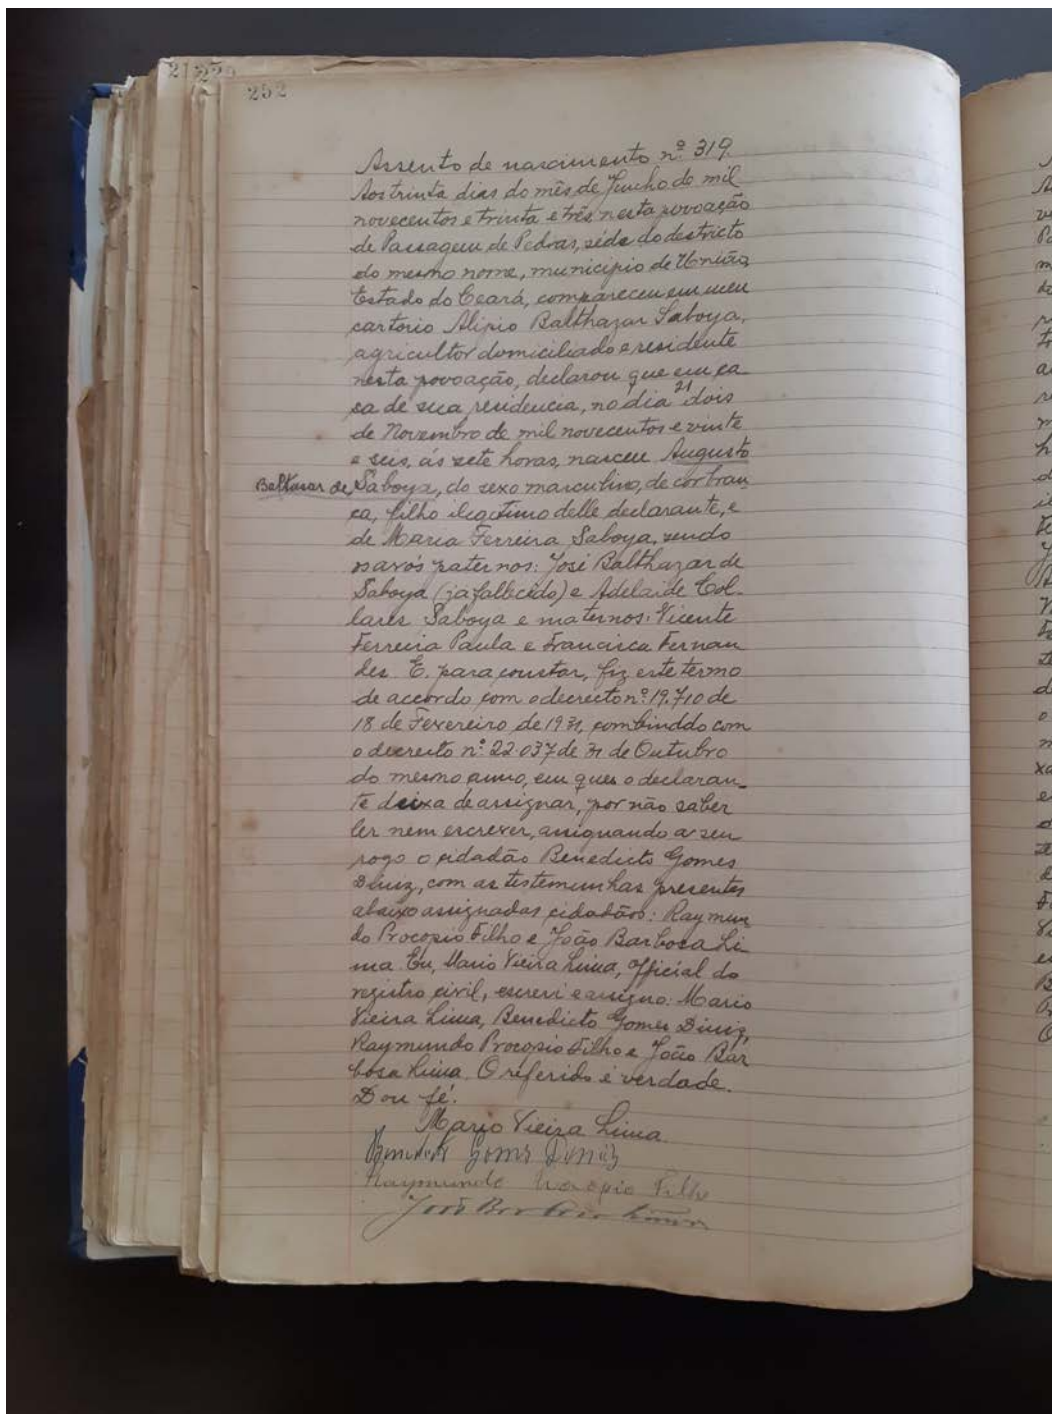 252
Assento de nascimento nº 319.
Aos trinta dias do mês de Junho de mil
novecentos e trinta e três nesta povoação
de Passagem de Pedras, séde do destricto
do mesmo nome, municipio de União,
Estado do Ceará, compareceu em meu
cartorio Alipio Balthazar Saboya,
agricultor domiciliado e residente
nesta povoação, declarou que em ca
sa de sua residencia, no dia 21 dois
de Novembro de mil novecentos e vinte
e seis, ás sete horas, nasceu Augusto
Baltasar de Saboya, do sexo masculino, de côr bran
ca, filho ilegitimo delle declarante, e
de Maria Ferreira Saboya, sendo
avós paternos: José Balthazar de
Saboya (ja fallecido) e Adelaide Col-
lares Saboya e maternos: Vicente
Ferreira Paula e Francisca Fernan
des. E. para constar, fiz este termo
de accordo com o decreto nº 19.710 de
18 de Fevereiro de 1931, combinddo com
o decreto nº 22.037 de 31 de Outubro
do mesmo anno, em ques o declaran-
te deixa de assignar, por não saber
ler nem escrever, assignando a seu
rogo o cidadão Benedicto Gomes
Diniz, com as testemunhas presentes
abaixo assignadas cidadãos: Raymun
do Procopio Filho e João Barbosa Li-
ma. Eu, Mario Vieira Lima, Official do
registro civil, escrevi e assigno: Mario
Vieira Lima, Benedicto Gomes Diniz,
Raymundo Procopio Filho e João Bar
bosa Lima. O referido é verdade.
Dou fé.
Mario Vieira Lima
Gomes Diniz
Raymundo Procopio Filho